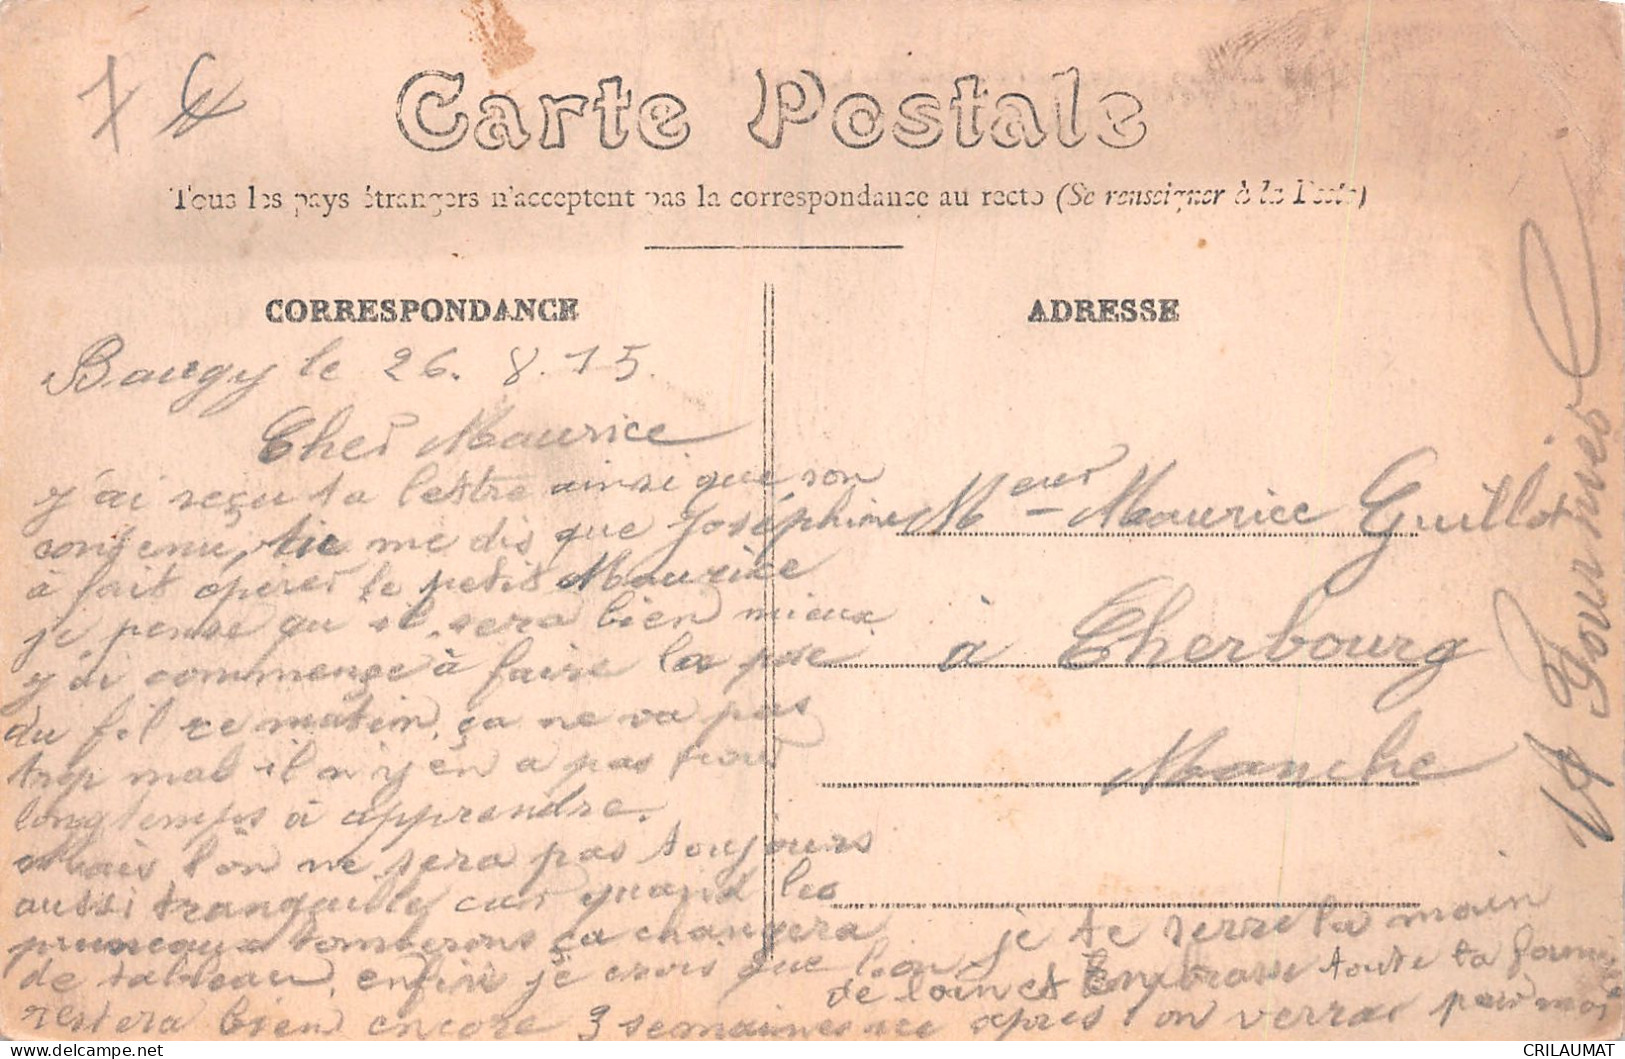 Carte Postale
Tous les pays étrangers n'acceptent pas la correspondance au recto (Se renseigner à la Poste)
CORRESPONDANCE
Baugy le 26. 8. 15.
Cher Maurice
j'ai reçu ta lettre ainsi que son
contenu, tu me dis que Joséphine
à fait opérer le petit Maurice
je pense qu il sera bien mieux
j'ai commençe à faire la pse
du fil ce matin, ça ne va pas
trop mal il n'y en a pas pour
longtemps à apprendre.
Mais l'on ne sera pas toujours
aussi tranquille car quand les
pruneaux tomberons ça changera
de tableau, enfin je crois que l'on
restera bien encore 3 semaines ice
ADRESSE
Maurice Guillot
à Cherbourg
Manche
je te serre la main
de loin et Embrasse toute ta famille
après l'on verras pour moi
A Fournier
CRILAUMAT